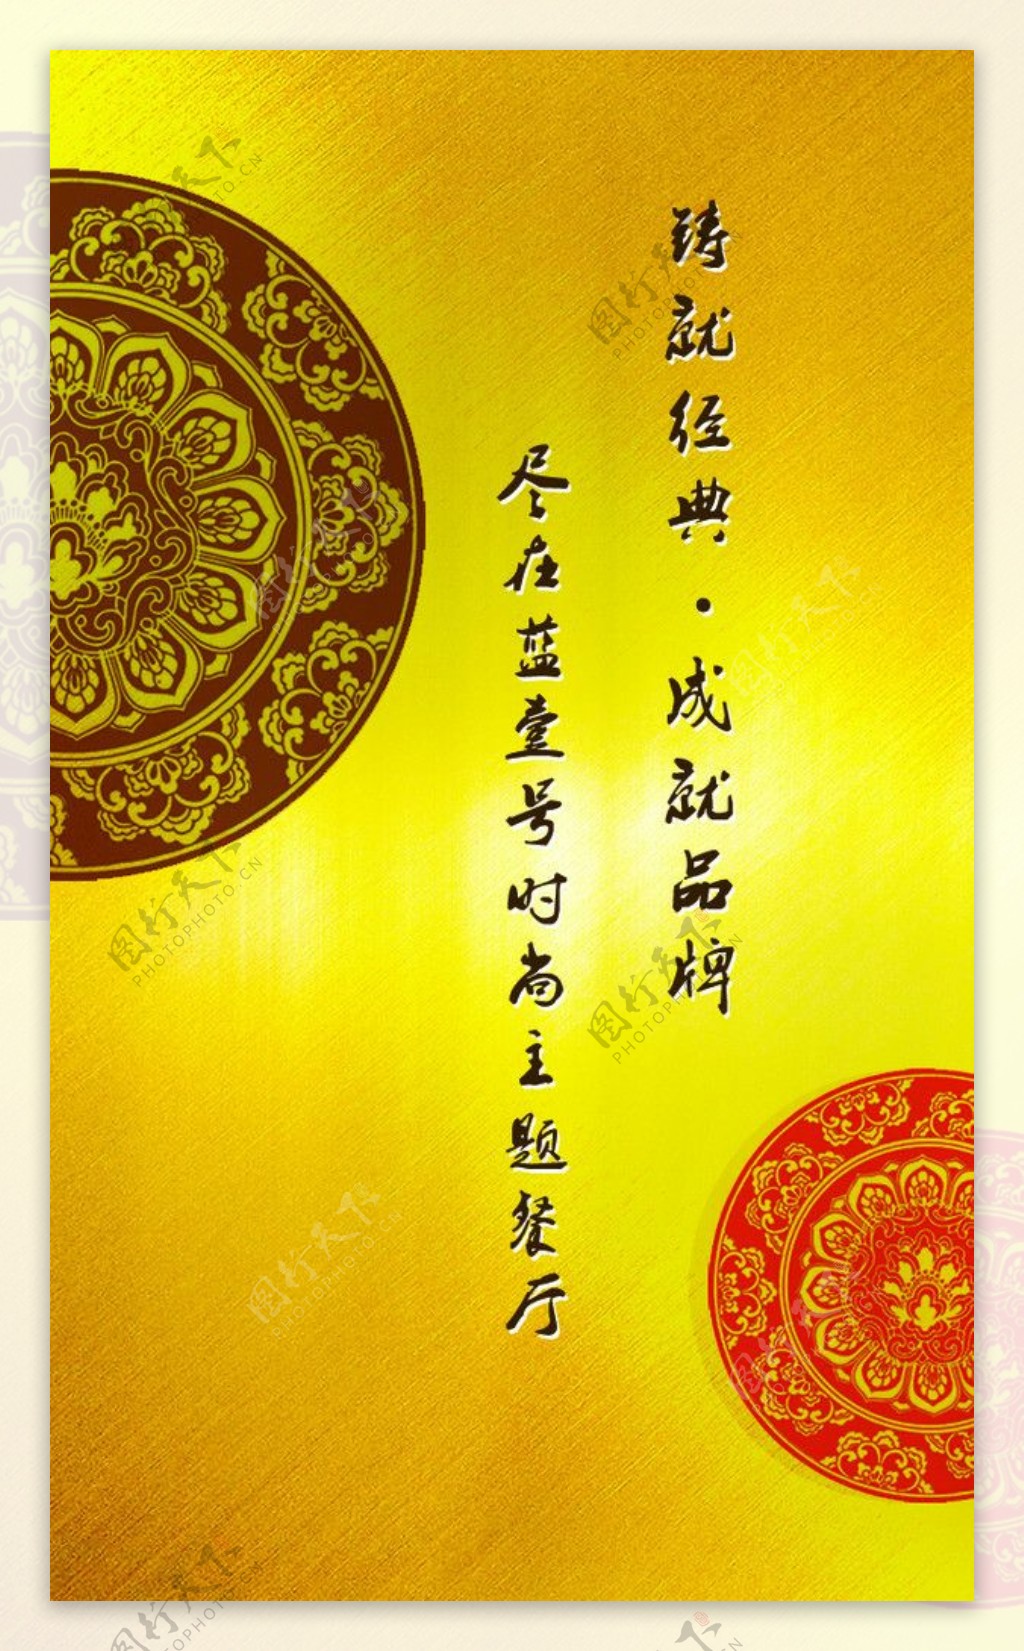 铸就经典·成就品牌
尽在蓝壹号时尚主题餐厅
图行天下
PHOTOPHOTO.CN